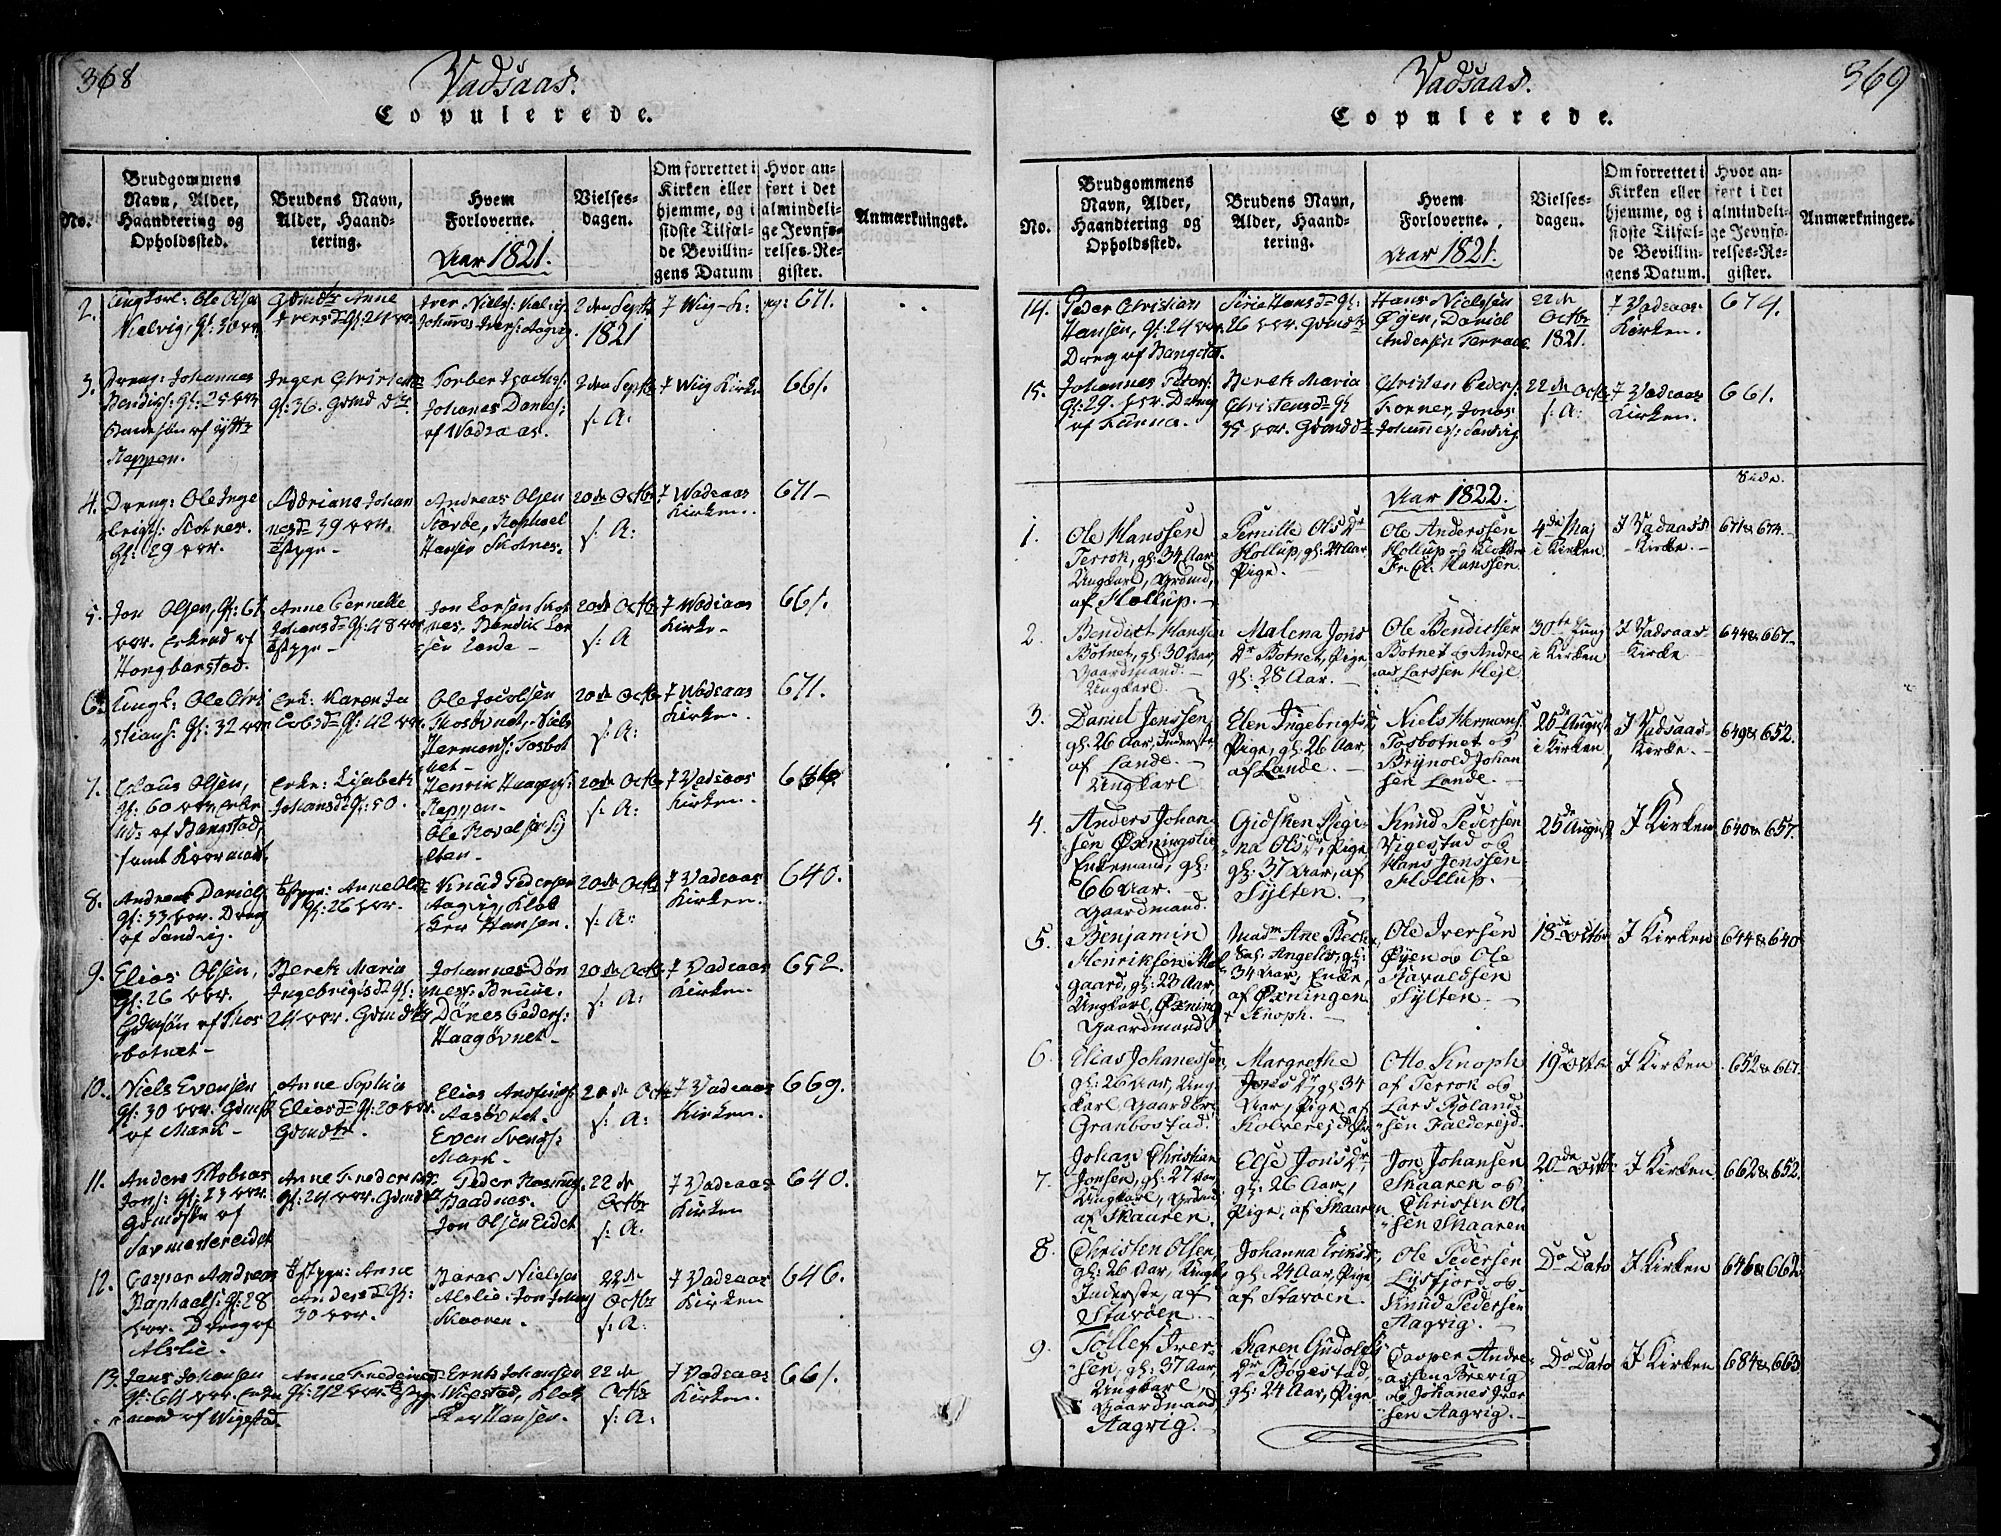 368
Vadsaas.
Copulerede.
No.
Brudgommens
Navn, Alder,
Haandtering og
Opholdssted.
Brudens Navn,
Alder, Haand-
tering.
Hvem
Forloverne.
Aar 1821.
Vielses-
dagen.
Om forrettet i
Kirken eller
hjemme, og i
sidste Tilfæl-
de Bevillin-
gens Datum
Hvor an-
ført i det
almindeli-
ge Jevnfø-
relses-Re-
gister.
Anmærkninger.
2.
Ungkarl: Ole Olsen
Gl: 30 aar.
Gdmdtr Anne
Iversdr Gl: 24 aar.
Iver Niels:
Johannes Ivers: Aagvig
2den Septbr
1821
I Wiig-K:
pag: 671.
3.
Dreng: Johannes
Gl: 25 aar
af ytre
Reppen.
Inger
Gl: 36. Gdmd dtr
Torber
Johanes Daniels:
af Wadsaas.
2den Septbr
s: A:
I Wiig Kirke
661.
4.
Dreng: Ole Inge
Skotnes.
Gl: 29 aar.
Adriana Johan
nesdr 39 aar.
Andreas Olsen
Raphael
Hansen Skotnes.
20de Octbr
s: A:
I Wadsaas
Kirken.
671-
5.
Jon Olsen, Gl: 61
aar. Enkemd af
Anne Pernelle
Johansdr Gl: 48 aar
Jon Larsen Skot
nes, Bendik Lar
sen Lande-
20de Octbr
s: A
I Wadsaas
Kirke-
661.
6.
Ungk: Ole Chri
stians: Gl: 32 aar
Enk: Karen Ja
cobsdr Gl: 42 aar.
Ole Jacobsen
Niels
Hermans: Tosbot
net-
20de Octbr
s: A:
I Wadsaas
Kirken.
671.
7.
Claus Olsen,
Gl: 60 aar Enke
md: af Bangstad,
Enke: Lisabeth
Johansdr Gl: 50.
Henrik
Reppen-
Ole
Sylten-
20de Octbr
s: A:
I Vadsaas
Kirken.
8.
Andreas Daniels:
Gl: 33 aar. Dreng
af Sandvig.
Anne Olsdr
Gl: 26 aar.
Knud Pedersen
Aagvig, Klok
ker Hansen.
20de Octbr
s: A:
I Vadsaas
Kirken.
640.
9.
Elias Olsen,
Gl: 26 aar.
Gdmsøn af Thos
botnet-
Beret Maria
Ingebrigtsdr Gl:
24 aar. Gdmdtr
Johannes Døn
nes:
Dønes Peders:
20de Octbr
s: A:
I Vadsaas
Kirken.
652.
10.
Niels Evensen
Gl: 30 aar. Gdms:
af Mark-
Anne Sophia
Eliasdr Gl: 20 aar.
Gdmdtr.
Elias
Even Svends:
Mark-
20de Octbr
s: A:
I Vadsaas
Kirken.
669.
11.
Anders Thobias
Jons: Gl: 27 aar.
Gdmdsøn af
Anne Fredriksdr
Gl: 24 aar. Gdmdtr
Peder
Baadnes.
Jon Olsen Eidet
22de
Octbr
s: A:
I Vadsaas
Kirken
640.
12.
Caspar Andreas
Raphaels: Gl: 28
aar. Dreng af
Alslie.
Anne
Andersdr Gl:
30 aar.
Nielsen
Alslie. Jon Johans:
Skaaren.
22de
Octbr
s: A:
I Vadsaas
Kirken.
646.
13.
Jens Johansen
Gl: 64 aar. Enke
mand af Wigestad.
Anne
Gl: 42 aar
Johansen
Wigestad, Klok
ker Hansen.
22de
Octbr
s: A:
I Vadsaas
Kirken.
661.
369
Vadsaas.
Copulerede.
No.
Brudgommens
Navn, Alder,
Haandtering og
Opholdssted.
Brudens Navn,
Alder, Haand-
tering.
Hvem
Forloverne.
Aar 1821.
Vielses-
dagen.
Om forrettet i
Kirken eller
hjemme, og i
sidste Tilfæl-
de Bevillin-
gens Datum.
Hvor an-
ført i det
almindeli-
ge Jevnfø-
relses-Re-
gister.
Anmærkninger.
14.
Peder Christian
Hansen, Gl: 24 aar.
Dreng af Bangstad.
Siri Hansdr Gl:
26 aar. Gdmdtr
Hans Nielsen
Øyen, Daniel
Andersen Terraak.
22de
Octbr
1821.
I Vadsaas
Kirken.
674.
15.
Johannes Peters:
Gl: 29. aar. Dreng
Beret Maria
Christensdr Gl
35 aar. Gdmdtr
Christen Peders:
Horner, Jonas
Johannes: Sandvig.
22de Octbr
s: A:
I Vadsaas
Kirken.
661.
Aar 1822.
Side.
1.
Ole Hanssen
Terrok, gl: 34 Aar
Ungkarl, Grdmd,
af Hollup.-
Pernille Olsdr
Hollup, gl: 24 Aar
Pige.-
Ole Anderssen
Hollup og Klokker
Fr Chr: Hanssen.
4de Maj
i Kirken
I Vadsaas
Kirke.-
671 & 674.-
2.
Bendict Hanssen
Botnet, gl: 30 Aar,
Gaardmand.
Ungkarl.
Malena Jons
dr Botnet, Pige
gl: 28 Aar.
Ole Bendictsen
Botnet og Andre
as Larssen Hejl.
30te Juny
i Kirken
I Vadsaas-
Kirke
644 & 667.-
3.
Daniel Jenssen,
gl: 26 Aar, Inderste,
af Lande.
Ungkarl
Elen Ingebrigtsdr
Pige, gl: 26 Aar,
af Lande.-
Niels Hermans:
Tosbotnet og
Brynold Johan
sen Lande.-
25de August
i Kirken
I Vadsaas-
Kirke-
649 & 652.
4.
Anders Johan
sen Øxningslie
Enkemand, gl:
66 Aar.
Gaardmand.
Gidsken Regi
na Olsdr, Pige
gl: 37 Aar, af
Sylten.-
Knud Pedersen
Vigestad og
Hans Jenssen
Hollup.-
25de August
I Kirken
640 & 657.
5.
Benjamin
Henriksen
gaard, gl: 23 Aar,
Ungkarl, Øxning
Gaardmand
Madm Ane
34 Aar, Enke,
af Øxningen
Knoph.-
Ole Iversen
Øyen og Ole
Havaldsen
Sylten.-
18de Octbr
I Kirken
644 & 640
6.
Elias Johanessen,
gl: 26 Aar, Ung
karl, Gaardbr
Granbostad.
Margrethe
Jonsdr, gl: 34
Aar, Pige af
Kolvereid
Otto Knoph
af Terrok og
Lars Roland
sen Falderejd.
19de Octbr
I Kirken
652 & 667.
7.
Johan Christian
Jonsen, gl: 27 Aar,
Ungkarl, Grdmd
af Skaaren.
Else Jonsdr
gl: 26 Aar,
Pige, af Skaaren
Jon Johansen
Skaaren og
Christen Ol
sen Skaaren
20de Octbr
I Kirken
662 & 652.
8.
Christen Olsen,
gl: 26 Aar, Ungk:
Inderste, af
Starøen.-
Johanna Eriksdr,
gl: 24 Aar, Pige
af Starøen.
Ole Pedersen
Lysfjord og
Knud Pedersen
Aagvig.-
Do Dato
I Kirken
646 & 662
9.
Tollef Iver
sen, gl: 37 Aar,
Ungkarl,
Gaardmand,
Aagvig.-
Karen Gudolfs
dr Bøgestad,
gl: 24 Aar, Pige
Casper Andre-
assen Brevig
og Johanes Iver
sen Aagvig.-
Do Dato
I Kirken
684 & 663